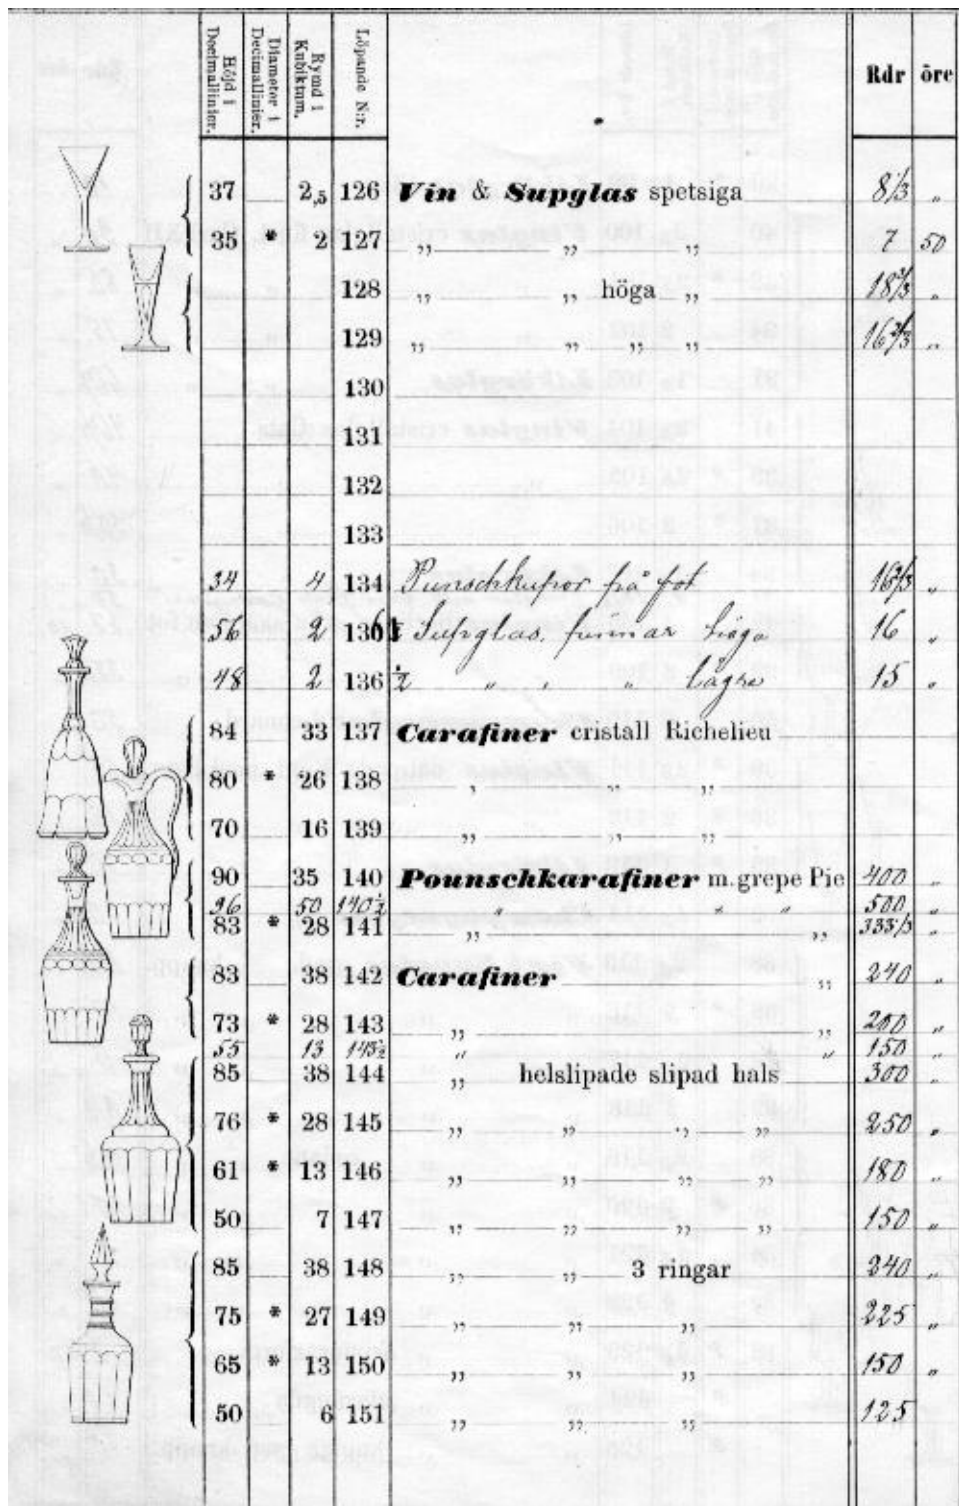 Höjd i Decimallinier. Diameter i Decimallinier. Rymd i Kubiktum. Löpande N:r. Rdr öre
37 2,5 126 Vin & Supglas spetsiga 8⅓ „
35 * 2 127 „ „ „ 7 50
128 „ „ höga „ 18⅔ „
129 „ „ „ „ 16⅔ „
130
131
132
133
34 4 134 Punschkupor på fot 16⅔ „
56 2 136 ½ Supglas, pinnar höga 16 „
48 2 136 ½ „ „ „ lägre 15 „
84 33 137 Carafiner cristall Richelieu
80 * 26 138 „ „ „
70 16 139 „ „ „
90 35 140 Pounschkarafiner m. grepe Pie 400 „
96 50 140½ „ „ „ „ 500 „
83 * 28 141 „ „ 333⅓ „
83 38 142 Carafiner „ 240 „
73 * 28 143 „ „ 200 „
55 13 143½ „ „ 150 „
85 38 144 „ helslipade slipad hals 300 „
76 * 28 145 „ „ „ „ 250 „
61 * 13 146 „ „ „ „ 180 „
50 7 147 „ „ „ „ 150 „
85 38 148 „ „ 3 ringar 240 „
75 * 27 149 „ „ „ 225 „
65 * 13 150 „ „ „ 150 „
50 6 151 „ „ „ 125